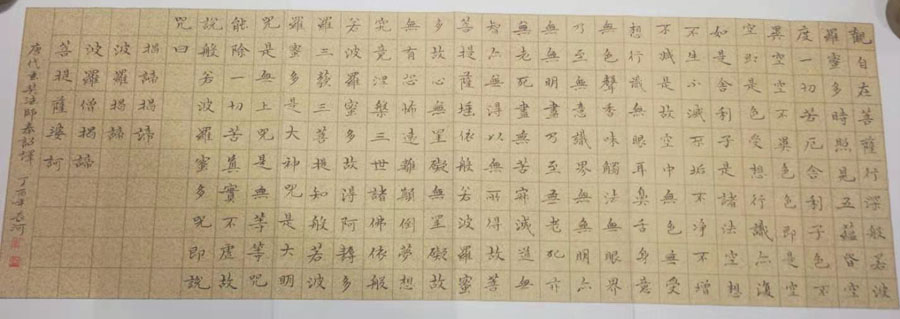 觀自在菩薩行深般若波
羅蜜多時照見五蘊皆空
度一切苦厄舍利子色不
異空空不異色色即是空
空即是色受想行識亦復
如是舍利子是諸法空想
不生不滅不垢不淨不增
不減是故空中無色無受
想行識無眼耳鼻舌身意
無色聲香味觸法無眼界
乃至無意識界無無明亦
無無明盡乃至無老死亦
無老死盡無苦寂滅道無
智亦無得以無所得故菩
菩提薩埵依般若波羅蜜
多故心無罣礙無罣礙故
無有恐怖遠離顛倒夢想
究竟涅槃三世諸佛依般
若波羅蜜多故得阿耨多
羅三藐三菩提知般若波
羅蜜多是大神咒是大明
咒是無上咒是無等等咒
能除一切苦真實不虛故
說般若波羅蜜多咒即說
咒曰
揭諦揭諦
波羅揭諦
波羅僧揭諦
菩提薩婆訶
唐代玄奘法師奉詔譯 丁酉年